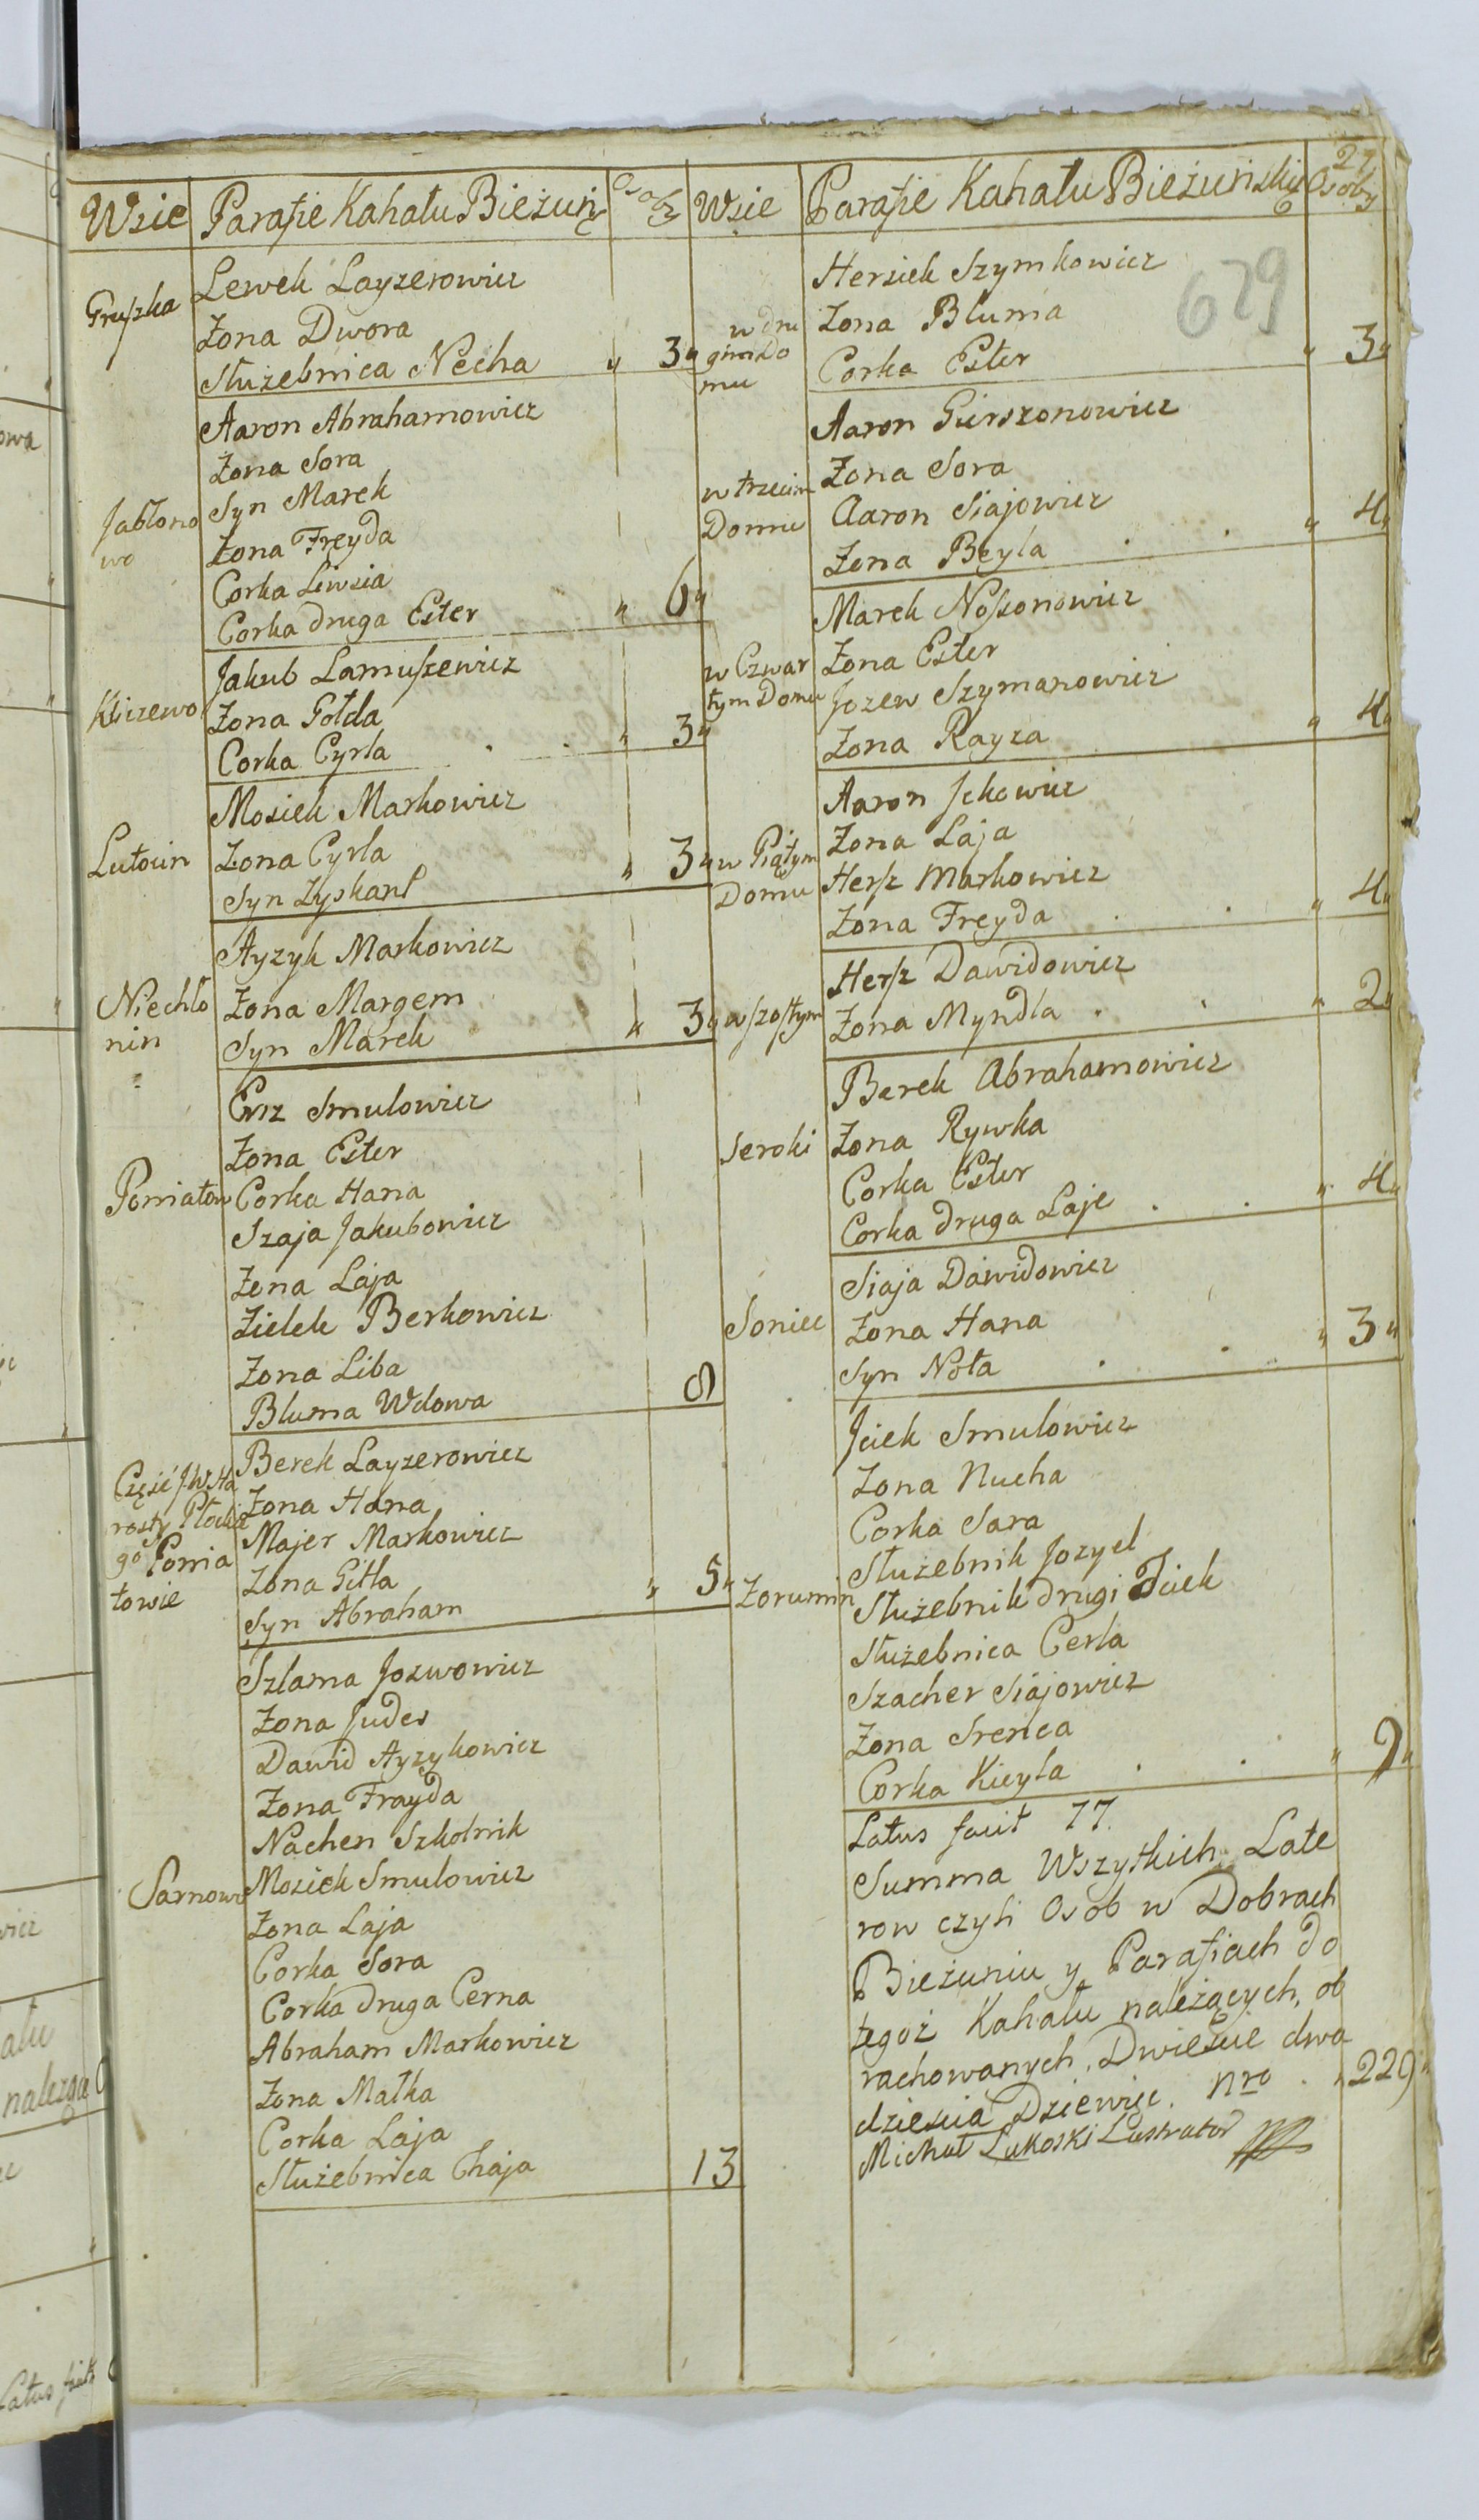 27
Wsie Parafie Kahału Bieżuń Osoby
Gruszka
Lewek Layzerowicz
Żona Dwora
Służebnica Necha " 3 "
Jabłono
wo
Aaron Abrahamowicz
Żona Sora
Syn Marek
Żona Freyda
Corka Liwsia
Corka druga Ester " 6 "
Kliczewo
Jakub Lamuszewicz
Żona Gołda
Corka Cyrla . . " 3 "
Lutocin
Mosiek Markowicz
Żona Cyrla " 3 "
Syn Zyskant
Niechło
nin
Ayzyk Markowicz
Żona Margem
Syn Marek " 3 "
Poniatow
Smulowicz
Żona Ester
Corka Hana
Szaja Jakubowicz
Żona Laja
Zielek Berkowicz
Żona Liba
Bluma Wdowa 8
Część JW Sta
rosty Płockie
go Ponia
towie
Berek Layzerowicz
Żona Hana
Majer Markowicz
Żona Gitla
Syn Abraham " 5 "
Sarnowo
Szlama Jozwowicz
Żona Judes
Dawid Ayzykowicz
Żona Frayda
Nachen Szkolnik
Mosiek Smulowicz
Żona Laja
Corka Sora
Corka druga Cerna
Abraham Markowicz
Żona Małka
Corka Laja
Służebnica Chaja 13
Wsie Parafie Kahału Bieżuńskie Osoby
629
w dru
gim Do
mu
Hersiek Szymkowicz
Żona Bluma
Corka Ester " 3 "
w trzecim
Domu
Aaron Gierszonowicz
Żona Sora
Aaron Siajowicz
Żona Beyla . . " 4 "
w Czwar
tym Domu
Marek Noszonowicz
Żona Ester
Jozew Szymanowicz
Żona Rayza " 4 "
w Piątym
Domu
Aaron Jckowicz
Żona Laja
Hersz Markowicz
Żona Freyda . . " 4 "
w szostym
Hersz Dawidowicz
Żona Myndla . . " 2 "
Seroki
Berek Abrahamowicz
Żona Rywka
Corka Ester
Corka druga Laje . . " 4 "
Soniec
Siaja Dawidowicz
Żona Hana
Syn Nota . . " 3 "
Żorumin
Jciek Smulowicz
Żona Nucha
Corka Sara
Służebnik Jozyel
Służebnik drugi Jciek
Służebnica Cerla
Szacher Siajowicz
Żona Srenca
Corka Kieyla . . " 9 "
Latus facit 77.
Summa Wszystkich Late
row czyli Osob w Dobrach
Bieżuniu y Parafiach do
tegoż Kahału należących, ob
rachowanych, Dwieście dwa
dziescia Dziewięc. Nro . " 229 "
Michał Lukoski Lustrator